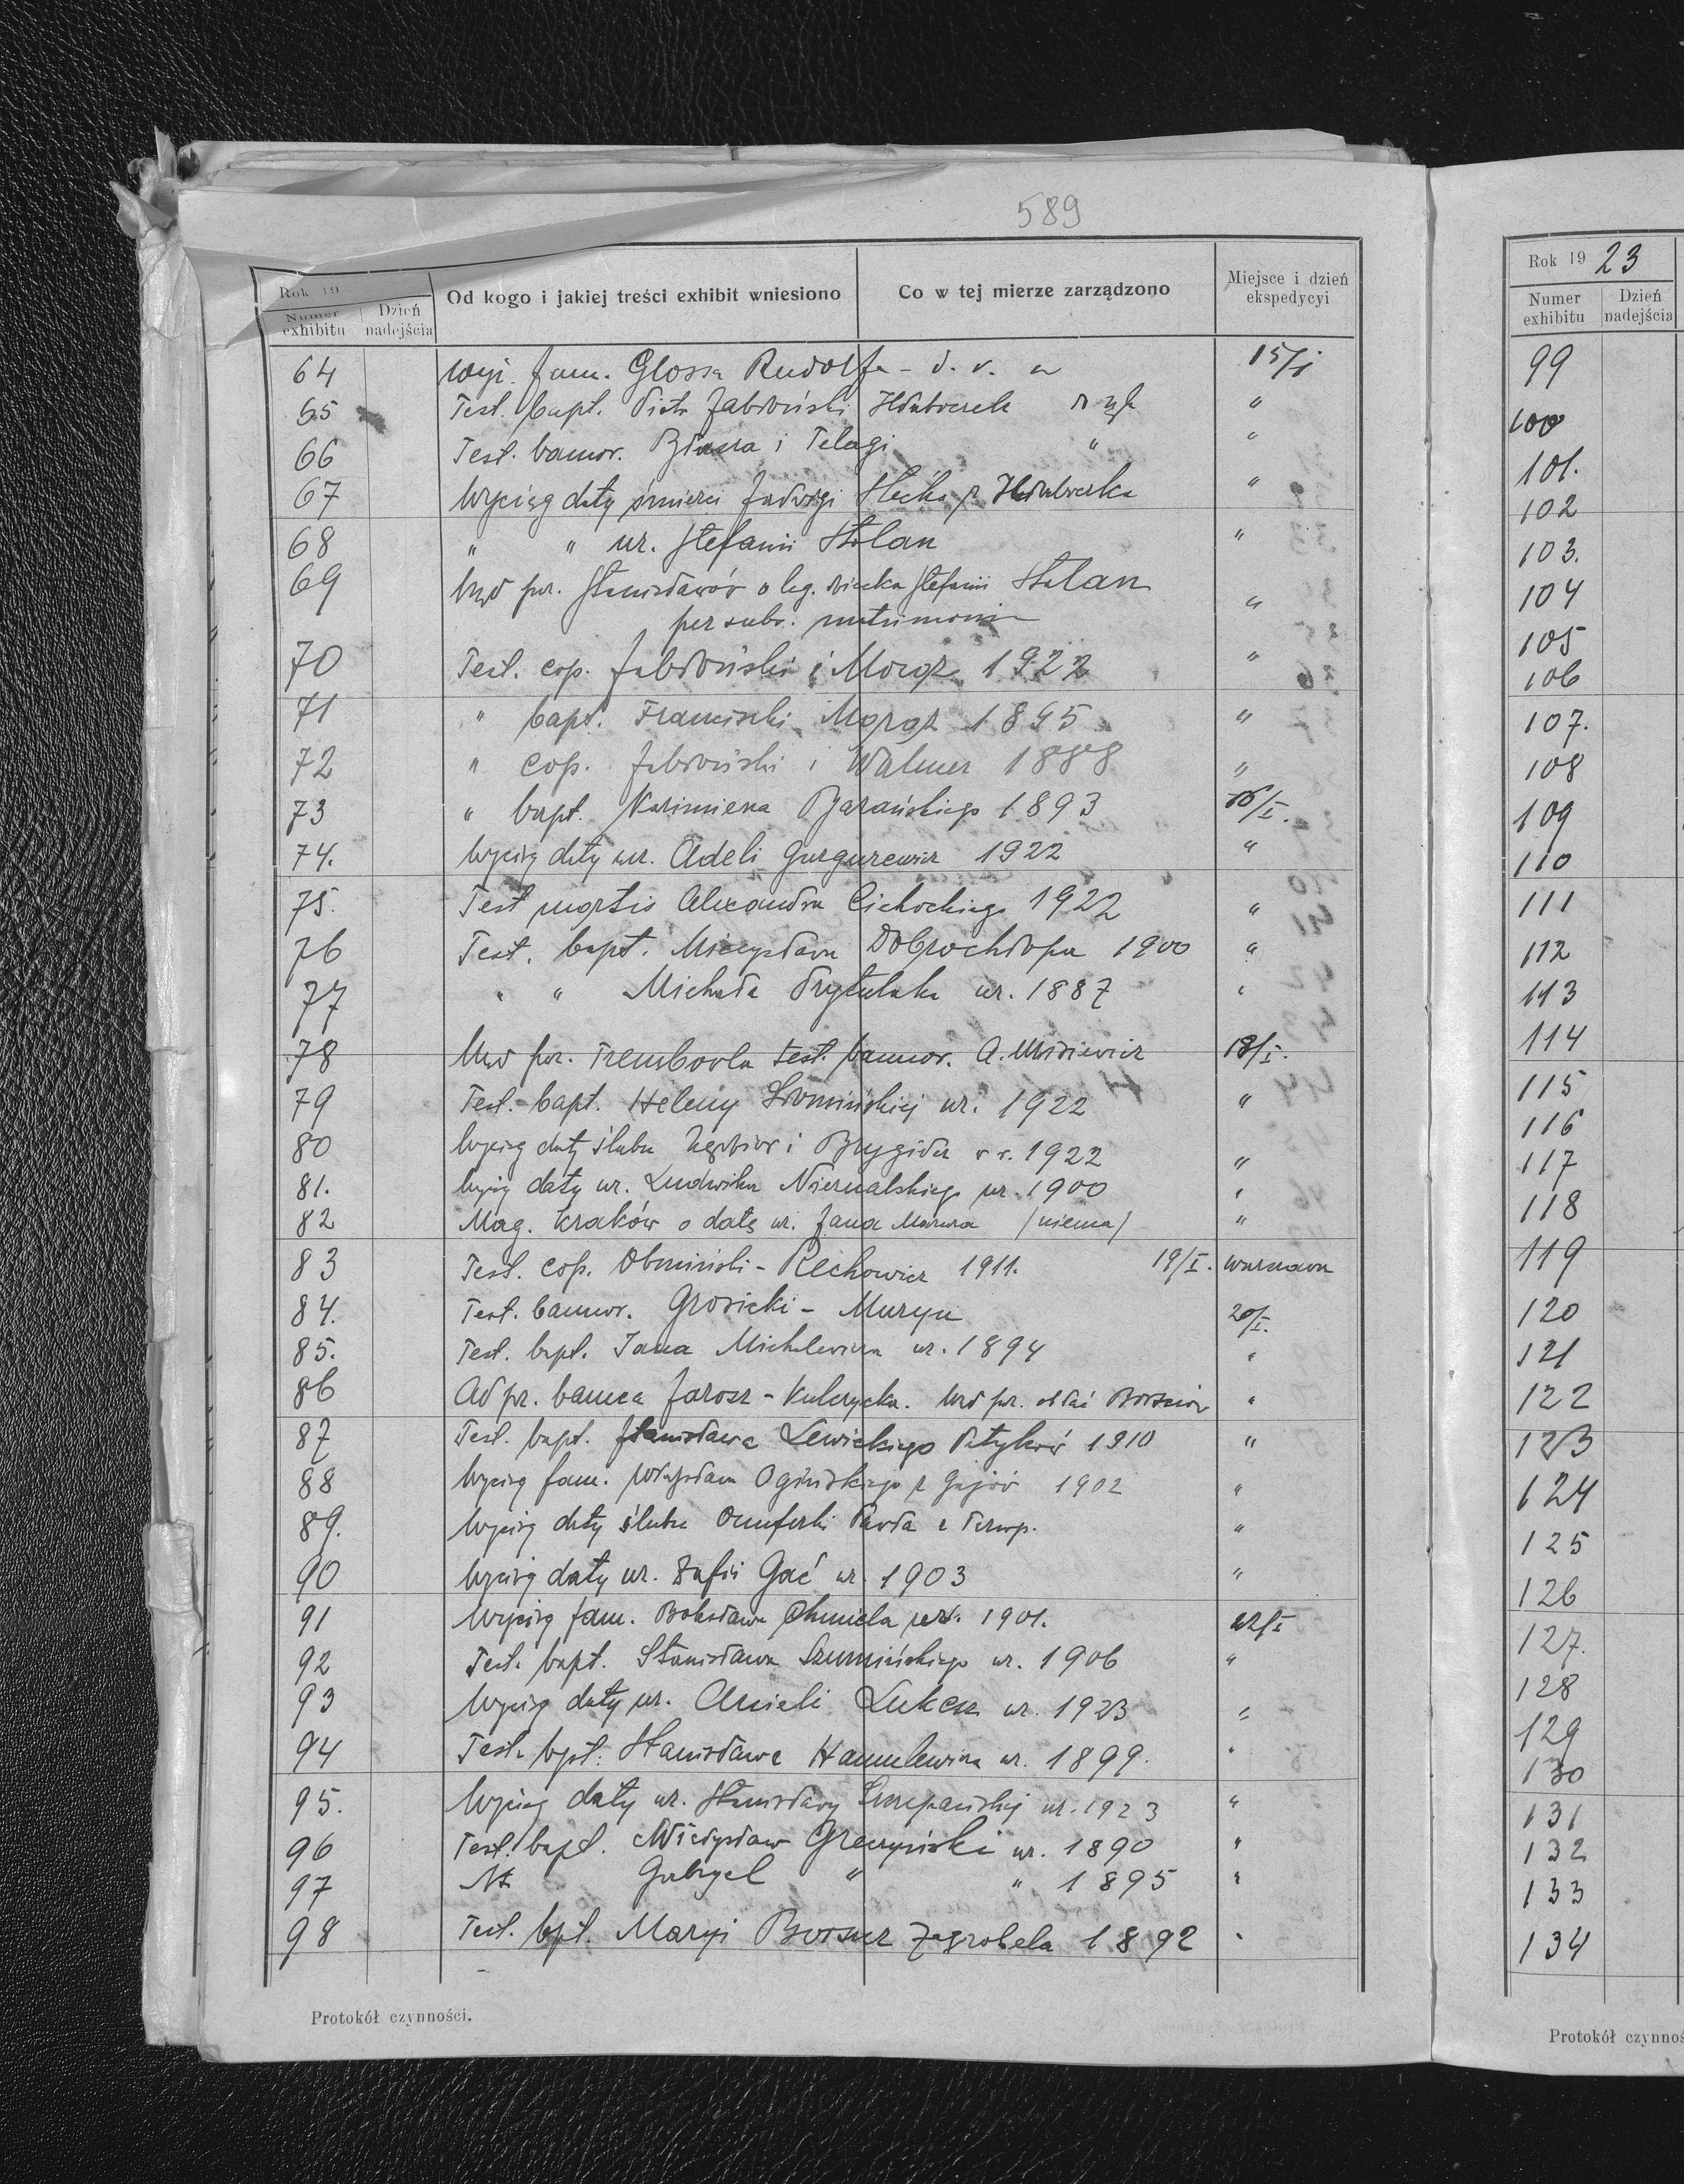 589
Rok 19
Numer exhibitu
Dzień nadejścia
Od kogo i jakiej treści exhibit wniesiono
Co w tej mierze zarządzono
Miejsce i dzień ekspedycyi
64 Wyc. fam. Glossa Rudolfa - 15/I
65 Test. bapt. Piotr Jabłoński "
66 Test. bannor. i Pelagi " "
67 Wyciąg daty śmierci Jadwigi "
68 " " ur. Stefanii "
69 Urząd par. Stanisławów o leg. dziecka Stefanii "
per subs. matrimonium
70 Test. cop. Jabłoński i Moroz 1922 "
71 " bapt. Franciszki Moroz 1895 "
72 " cop. Jabłoński i Walmer 1888 "
73 " bapt. Kazimierza Barańskiego 1893 16/I.
74. Wyciąg daty ur. Adeli Gurgurewicz 1922 "
75. Test mortis Alexandra Cichockiego 1922 "
76 Test. bapt. Mieczysława Dobrochłopa 1900 "
77 " " Michała Prytulaka ur. 1887 "
78 Urząd par. Trembowla test. bannor. A. Misiewicz 18/I.
79 Test. bapt. Heleny Słomińskiej ur. 1922 "
80 Wyciąg daty ślubu i Brygida 1922 "
81. Wyciąg daty ur. Ludwika Niernalskiego ur. 1900 "
82 Mag. Kraków o datę ur. Jana Mazura (niema) "
83 Test. cop. Obmiński - Rechowicz 1911. 19/I. Warszawa
84. Test. bannor. Grosicki - Muryn 20/I.
85. Test. bapt. Jana Michalewicza ur. 1894 "
86 Ad pr. banna Jarosz - Kulczycka. Urząd par. obłać Borszczów "
87 Test. bapt. Stanisława Lewickiego Petyków 1910 "
88 Wyciąg fam. Władysława Ogińskiego z Gajów 1902 "
89. Wyciąg daty ślubu Pawła z Tarnop. "
90 Wyciąg daty ur. Zofii Gać ur. 1903 "
91 Wyciąg fam. Bolesława Chmiela 1901. 22/I
92 Test. bapt. Stanisława Szumińskiego ur. 1906 "
93 Wyciąg daty ur. Anieli Łukasz ur. 1923 "
94 Test. bapt. Stanisława Hanulewicza ur. 1899. "
95. Wyciąg daty ur. Stanisławy Szczepańskiej ur. 1923 "
96 Test. bapt. Mieczysław Greczyński ur. 1890 "
97 Gabryel " " 1895 "
98 Test. bpt. Maryi Zagrobela 1892 "
Protokół czynności.
Rok 1923
Numer exhibitu
Dzień nadejścia
99
100
101.
102
103.
104
105
106
107.
108
109
110
111
112
113
114
115
116
117
118
119
120
121
122
123
124
125
126
127.
128
129
130
131
132
133
134
Protokół czynnoś